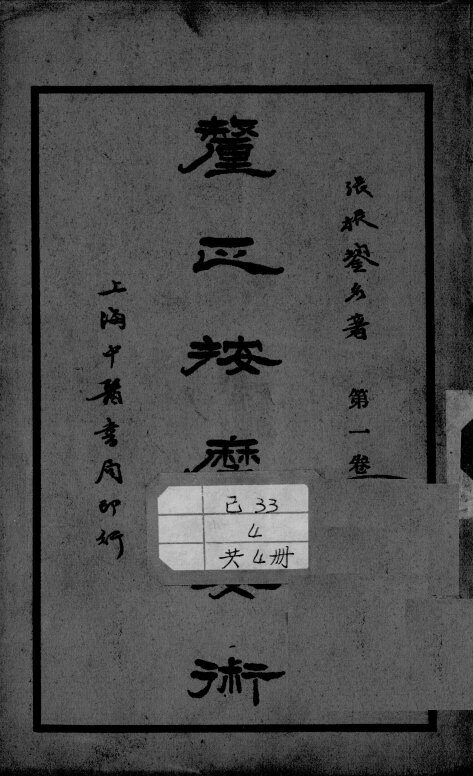 張振鋆著 第一卷
釐正按摩要術
上海中醫書局印行
已 33
4
共 4 冊